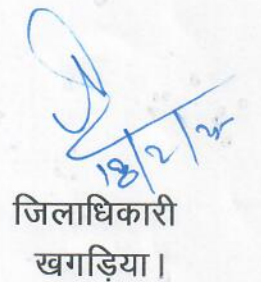 18/2/25
जिलाधिकारी
खगड़िया।